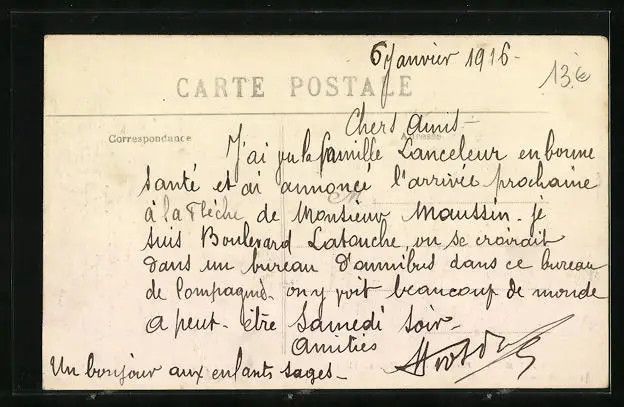 6 Janvier 1916-
13€
CARTE POSTALE
Chers Amis-
Correspondance
Adresse
J'ai vu la famille Lanceleur en bonne
santé et ai annoncé l'arrivée prochaine
M
à la Flèche de Monsieur Maussin- je
suis Boulevard Latouche, on se croirait
dans un bureau d'omnibus dans ce bureau
de Compagnie- on y voit beaucoup de monde
a peut-être Samedi soir-
amitiés
Un bonjour aux enfants sages-